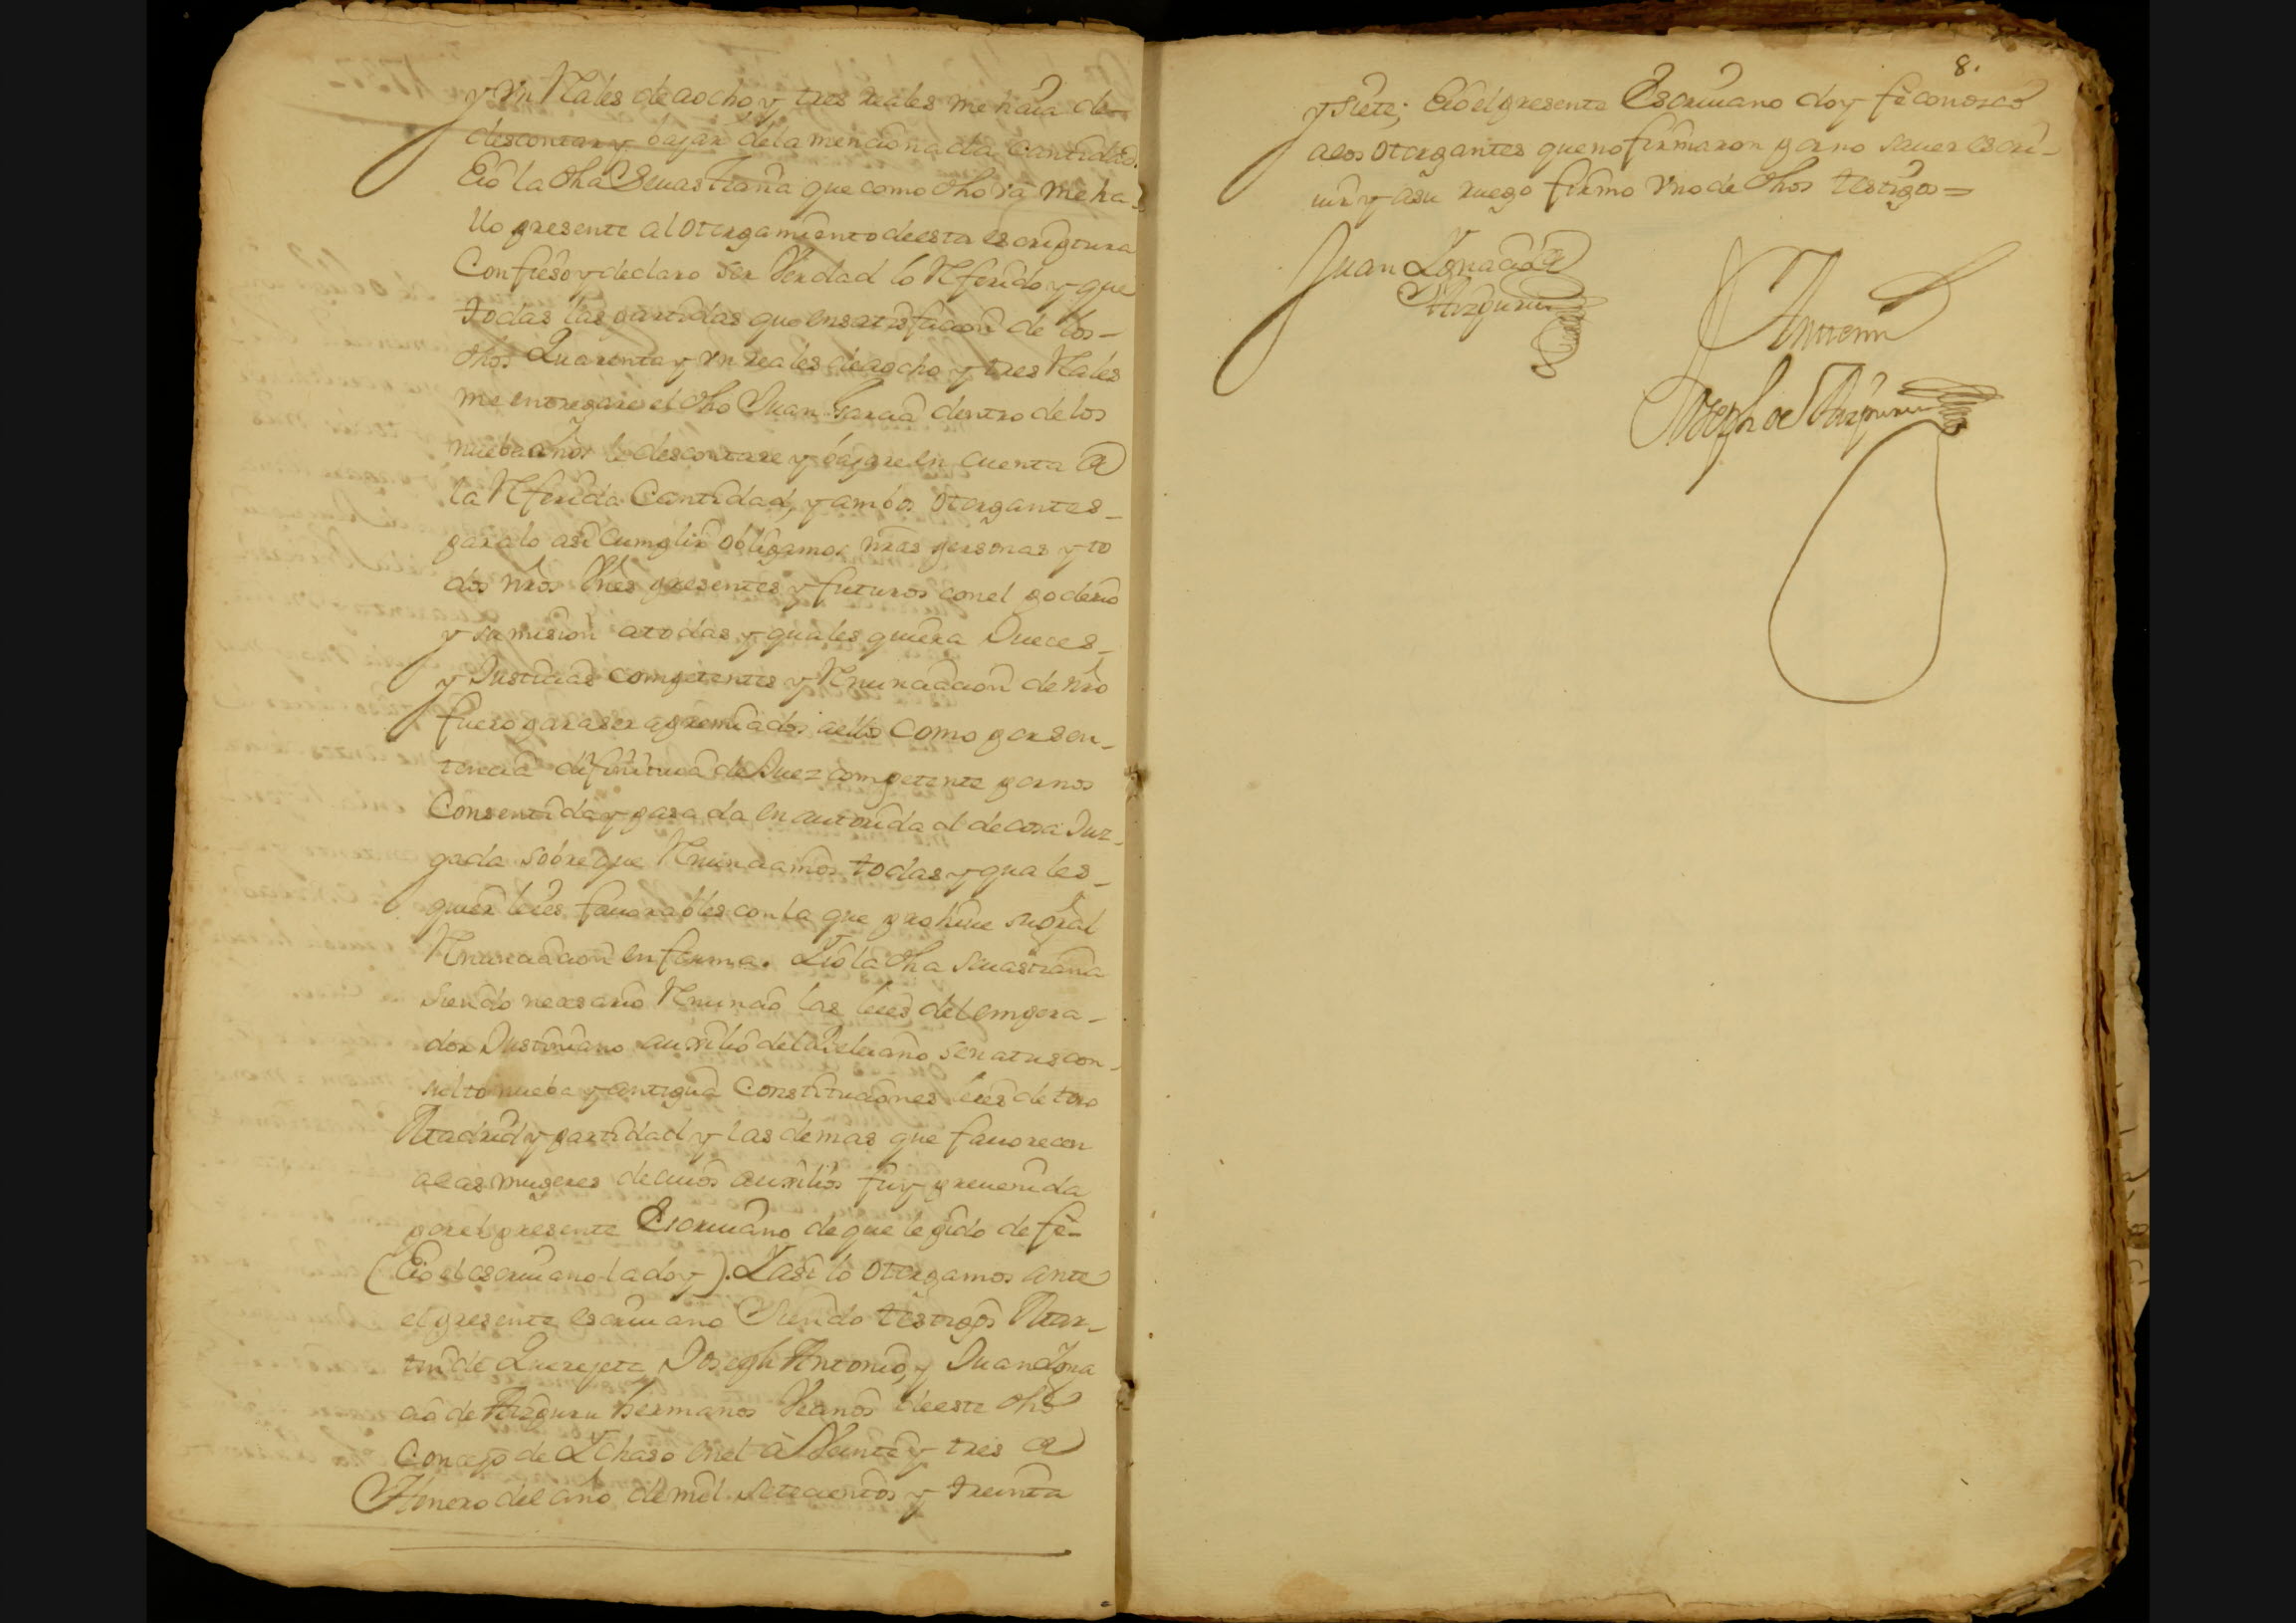 y Vn Rales de aocho y tres reales me haia de
descontar y bajar dela mencionada Cantidad.
Eio la dha Seuastiana que como dho ba me ha-
llo presente al otorgamiento de esta escriptura
Confieso y declaro ser Verdad lo Rferido y que
todas las partidas que en satisfacion de los-
dhos Quarenta y vn reales de aocho y tres Rales
me entregare el dho Juan Garcia dentro de los
nuebe años le descontare y bajare en cuenta de
la Rferida Cantidad, y ambos otorgantes-
para lo asi Cumplir obligamos nras personas y to
dos nros Vnes presentes y futuros con el poderio
y sumision atodas y quales quiera Jueces-
y Justicias competentes y Rnunciacion de nro
fuero para ser apremiados aello como por sen-
tencia difinitiua de Juez competente por nos
Consentida y pasada en autoridad de cosa Juz-
gada sobre que Rnunciamos todas y quales-
quier leies fauorables con la que prohiue su gral
Rnunciacion en forma. Eio la dha Seuastiana
siendo nezesario Rnuncio las leies del empera-
dor Justiniano auxilio del Veleiano senatus con-
sulto nueba y antigua Constituciones leies de toro
Madrid y partida y las demas que fauorecen
alas mugeres de cuios auxilios fuy preuenida
por el presente Escriuano de que le pido de fe-
(Eio el escriuano la doy). Y asi lo otorgamos ante
el presente escriuano Siendo testigos Mar-
tin de Querejeta, Joseph Antonio, y Juan Igna
cio de Aizpuru hermanos Vecinos de este dho
Concejo de Ychaso en el a Veinte y tres de
Henero del año de mil setecientos y treinta
8.
y siete; Eio el presente Escriuano doy fe conozco
alos otorgantes que no firmaron por no sauer escri-
uir y asu ruego firmo Vno de dhos testigos=
Juan Ignacio de
Aizpuru
Antemi
Joseph de Aizpuru